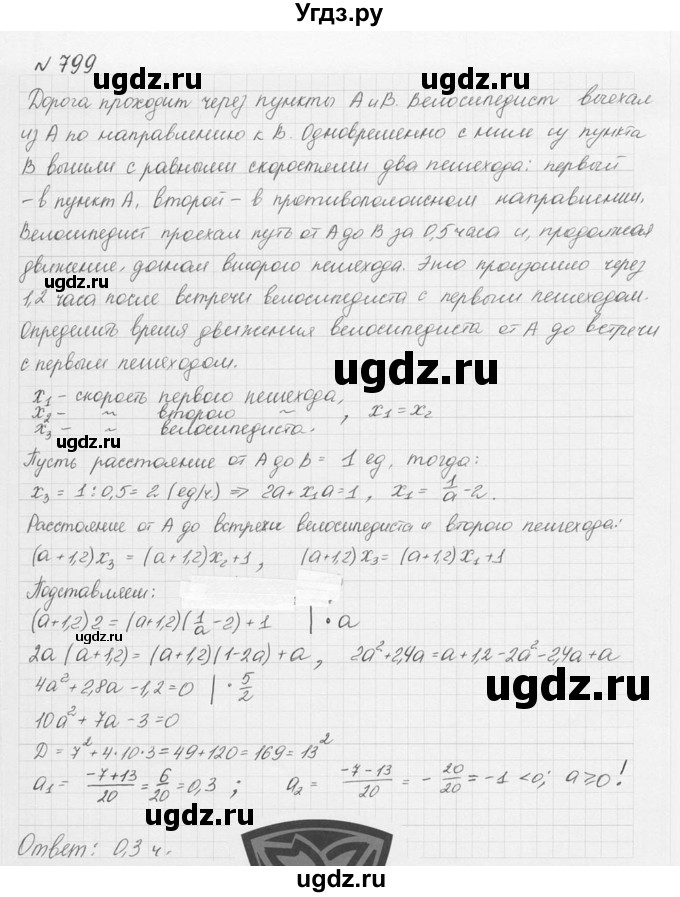 Угдз.ру
№ 799
ugdz.ru ugdz.ru
Дорога проходит через пункты А и В. Велосипедист выехал
из А по направлению к В. Одновременно с ним из пункта
В вышли с равными скоростями два пешехода: первый
- в пункт А, второй - в противоположном направлении.
Велосипедист проехал путь от А до В за 0,5 часа и, продолжая
движение, догнал второго пешехода. Это произошло через
1,2 часа после встречи велосипедиста с первым пешеходом.
Определить время движения велосипедиста от А до встречи
с первым пешеходом.
ugdz.ru
x₁ - скорость первого пешехода,
x₂ - ~ второго ~ , x₁ = x₂
x₃ - ~ велосипедиста.
ugdz.ru
Пусть расстояние от А до В = 1 ед, тогда:
x₃ = 1 : 0,5 = 2 (ед/ч) => 2a + x₁a = 1, x₁ = 1/a - 2.
Расстояние от А до встречи велосипедиста и второго пешехода:
(a + 1,2) x₃ = (a + 1,2) x₂ + 1, (a + 1,2) x₃ = (a + 1,2) x₁ + 1
Подставляем:
(a + 1,2) 2 = (a + 1,2) (1/a - 2) + 1 | · a
ugdz.ru
2a (a + 1,2) = (a + 1,2) (1 - 2a) + a, 2a² + 2,4a = a + 1,2 - 2a² - 2,4a + a
4a² + 2,8a - 1,2 = 0 | · 5/2
ugdz.ru
10a² + 7a - 3 = 0
D = 7² + 4 · 10 · 3 = 49 + 120 = 169 = 13²
a₁ = (-7+13)/20 = 6/20 = 0,3 ; a₂ = (-7-13)/20 = - 20/20 = -1 < 0; a ≥ 0!
ugdz.ru
Ответ: 0,3 ч.
ugdz.ru
ugdz.ru